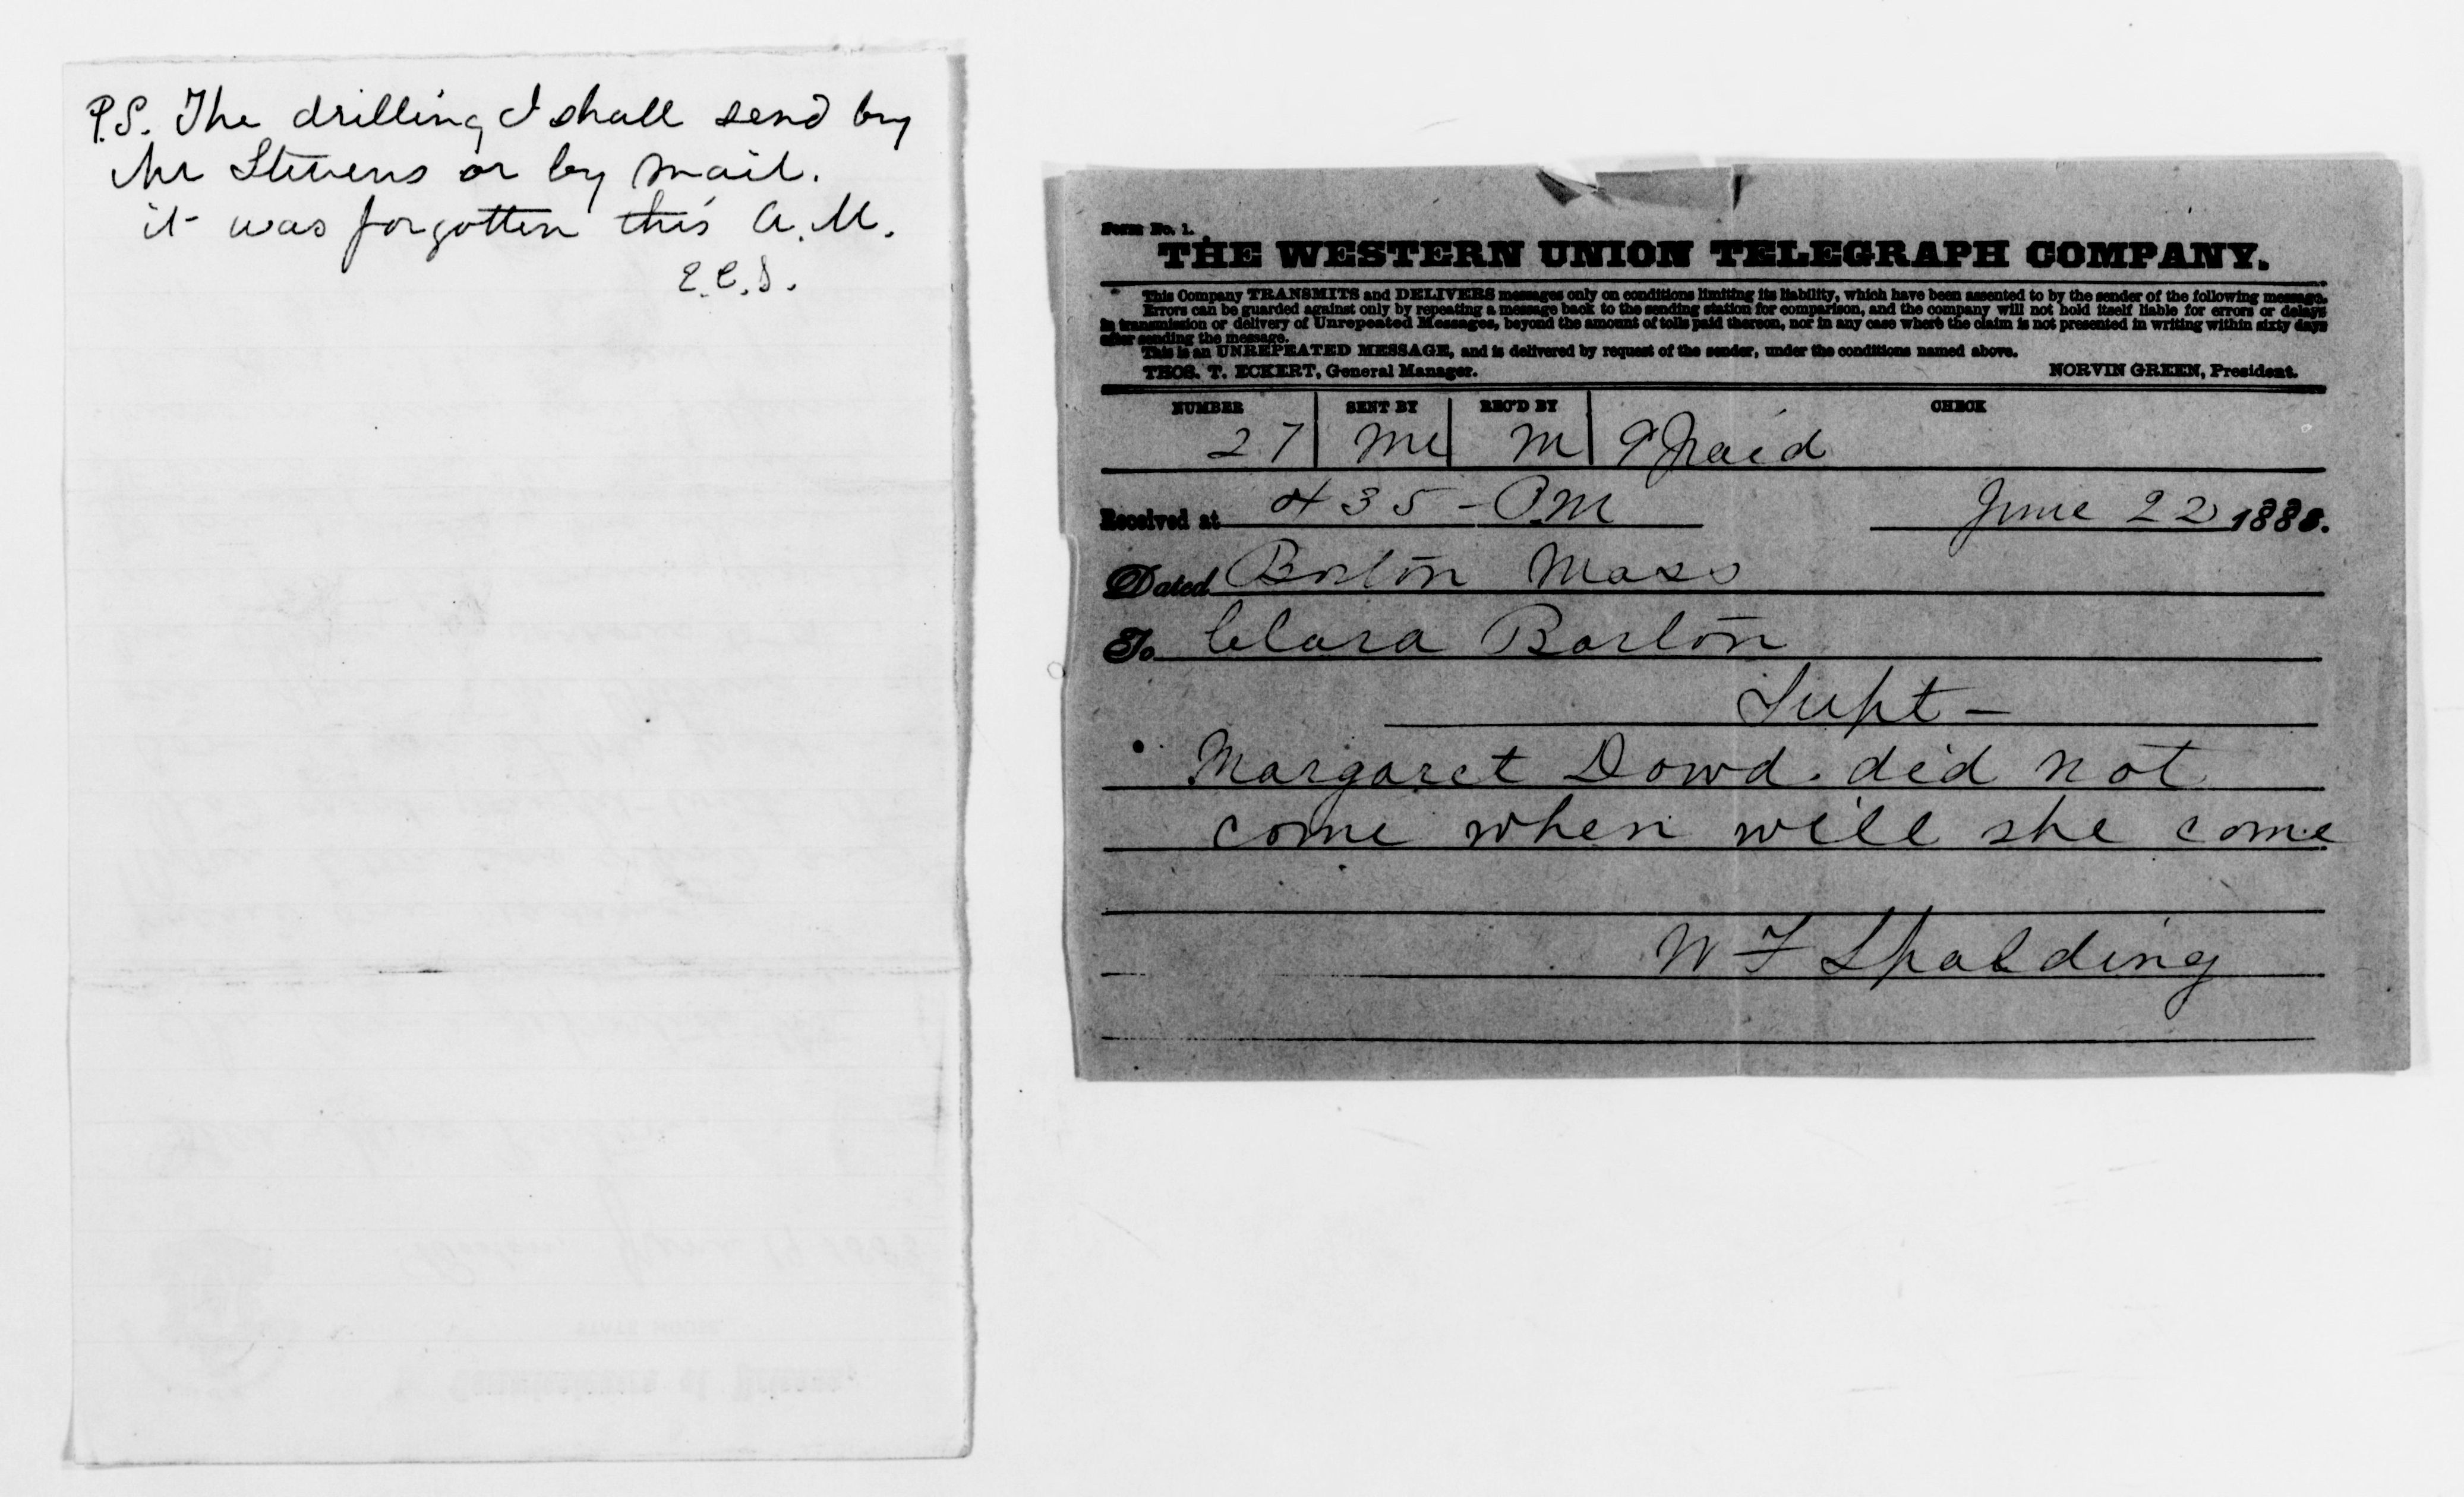 P.S. The drilling I shall send by
Mr Stevens or by mail.
it was forgotten this A.M.
E.C.S.
Form No. 1.
THE WESTERN UNION TELEGRAPH COMPANY.
This Company TRANSMITS and DELIVERS messages only on conditions limiting its liability, which have been assented to by the sender of the following message.
Errors can be guarded against only by repeating a message back to the sending station for comparison, and the company will not hold itself liable for errors or delays
in transmission or delivery of Unrepeated Messages, beyond the amount of tolls paid thereon, nor in any case where the claim is not presented in writing within sixty days
after sending the message.
This is an UNREPEATED MESSAGE, and is delivered by request of the sender, under the conditions named above.
THOS. T. ECKERT, General Manager. NORVIN GREEN, President.
NUMBER SENT BY REC'D BY CHECK
27 M 9 Paid
Received at 435 - PM June 22 1883.
Dated Boston Mass
To Clara Barton
Supt -
Margaret Dowd. did not
come when will she come
W F Spalding